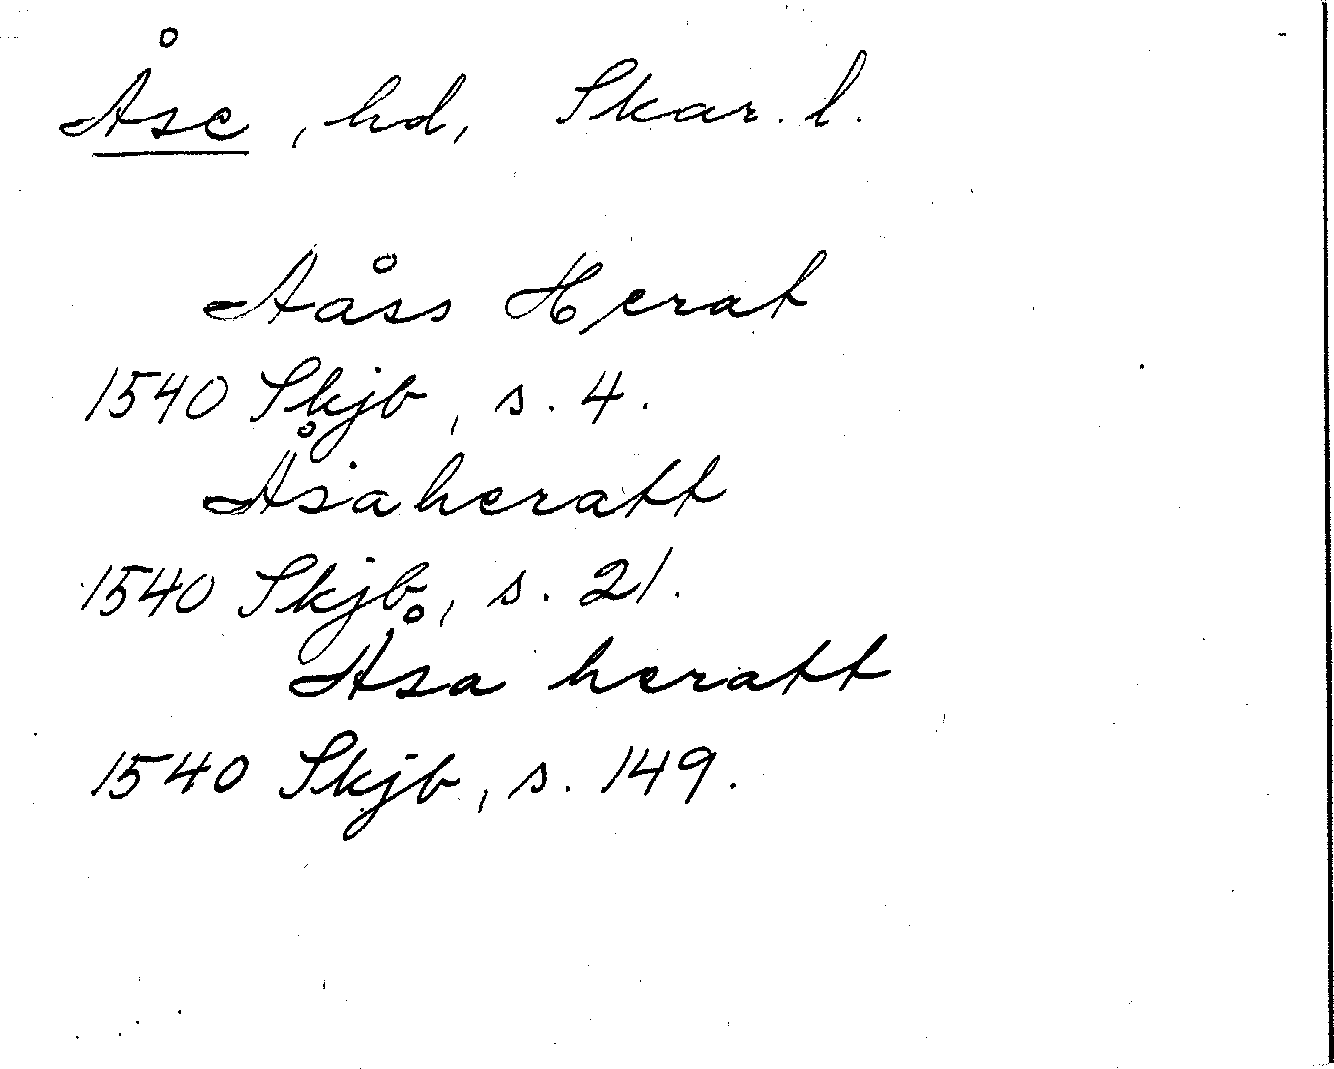 Åse, hd, Skar. l.
Aåss Herat
1540 Skjb, s. 4.
Åsaheratt
1540 Skjb, s. 21.
Åsa heratt
1540 Skjb, s. 149.